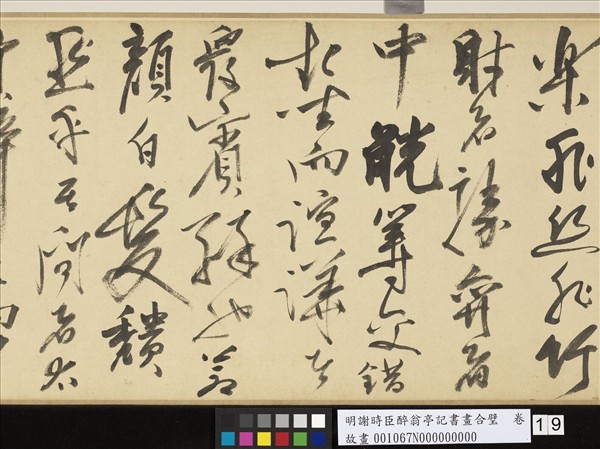 樂非絲非竹
射者勝弈者
中觥籌交錯
起坐而諠譁者
衆賓歡也蒼
顏白髮穨
然乎其間者太
明謝時臣醉翁亭記書畫合璧 卷
故畫 001067N000000000
19